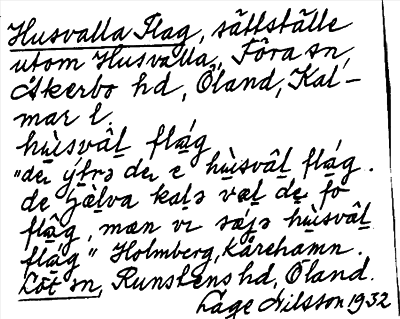 Husvalla Flag, sättställe
utom Husvalla, Föra sn,
Åkerbo hd, Öland, Kal-
mar l.
hùsvâl flág
"de ýtrə de e hùsvâl flág.
de jälva kalə væl de fo
flâg, mæn vı sájə hùsvâl
flág" Holmberg, Kårehamn.
Löt sn, Runstens hd, Öland.
Lage Nilsson 1932